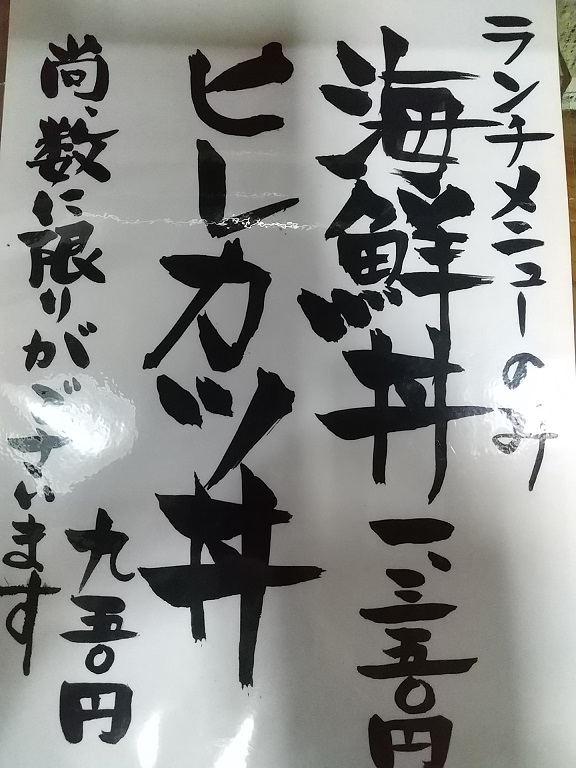 ランチメニューのみ
海鮮丼
一、三五〇円
ヒレカツ丼
九五〇円
尚、数に限りがございます